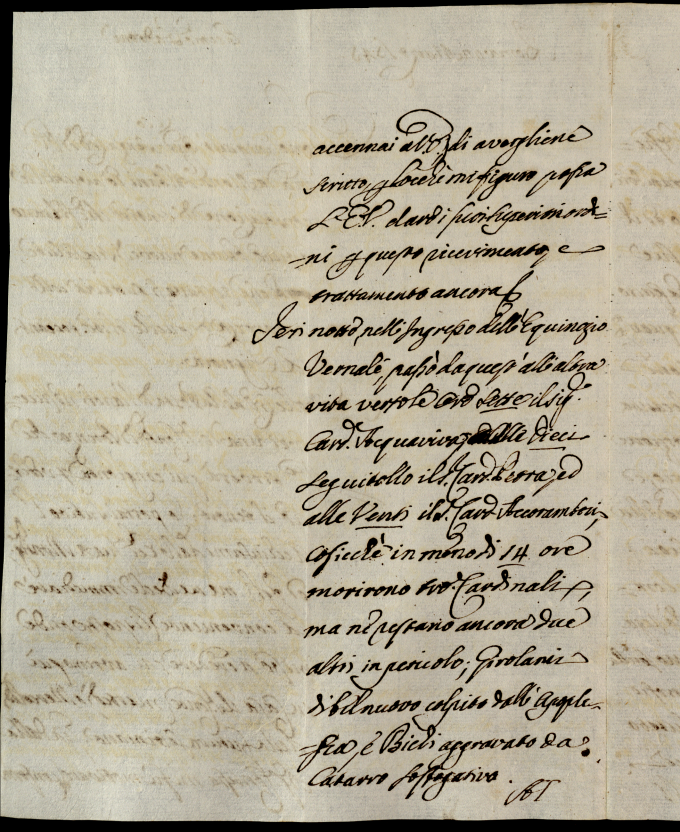 accennai all' di avergliene
scritto, p locchè mi figuro possa
L'E.V. darvi i suoi Superiori ordi=
ni p questo ricevimento, e
trattamento ancora
Jeri notte nell'Ingresso dell'Equinozio
Vernale, passò da quest'all'altra
vita verso le Ore Sette il sig.r
Card. Acquaviva, alle Dieci
seguitollo il S. Card. Petra, ed
alle Venti il S. Card. Accoramboni,
cosicchè in meno di 14 ore
morirono tre Cardinali,
ma ne restano ancora due
altri in pericolo; Girolami
di bel nuovo colpito dall'Apople=
sia, e Bichi aggravato da
Catarro soffogativo.